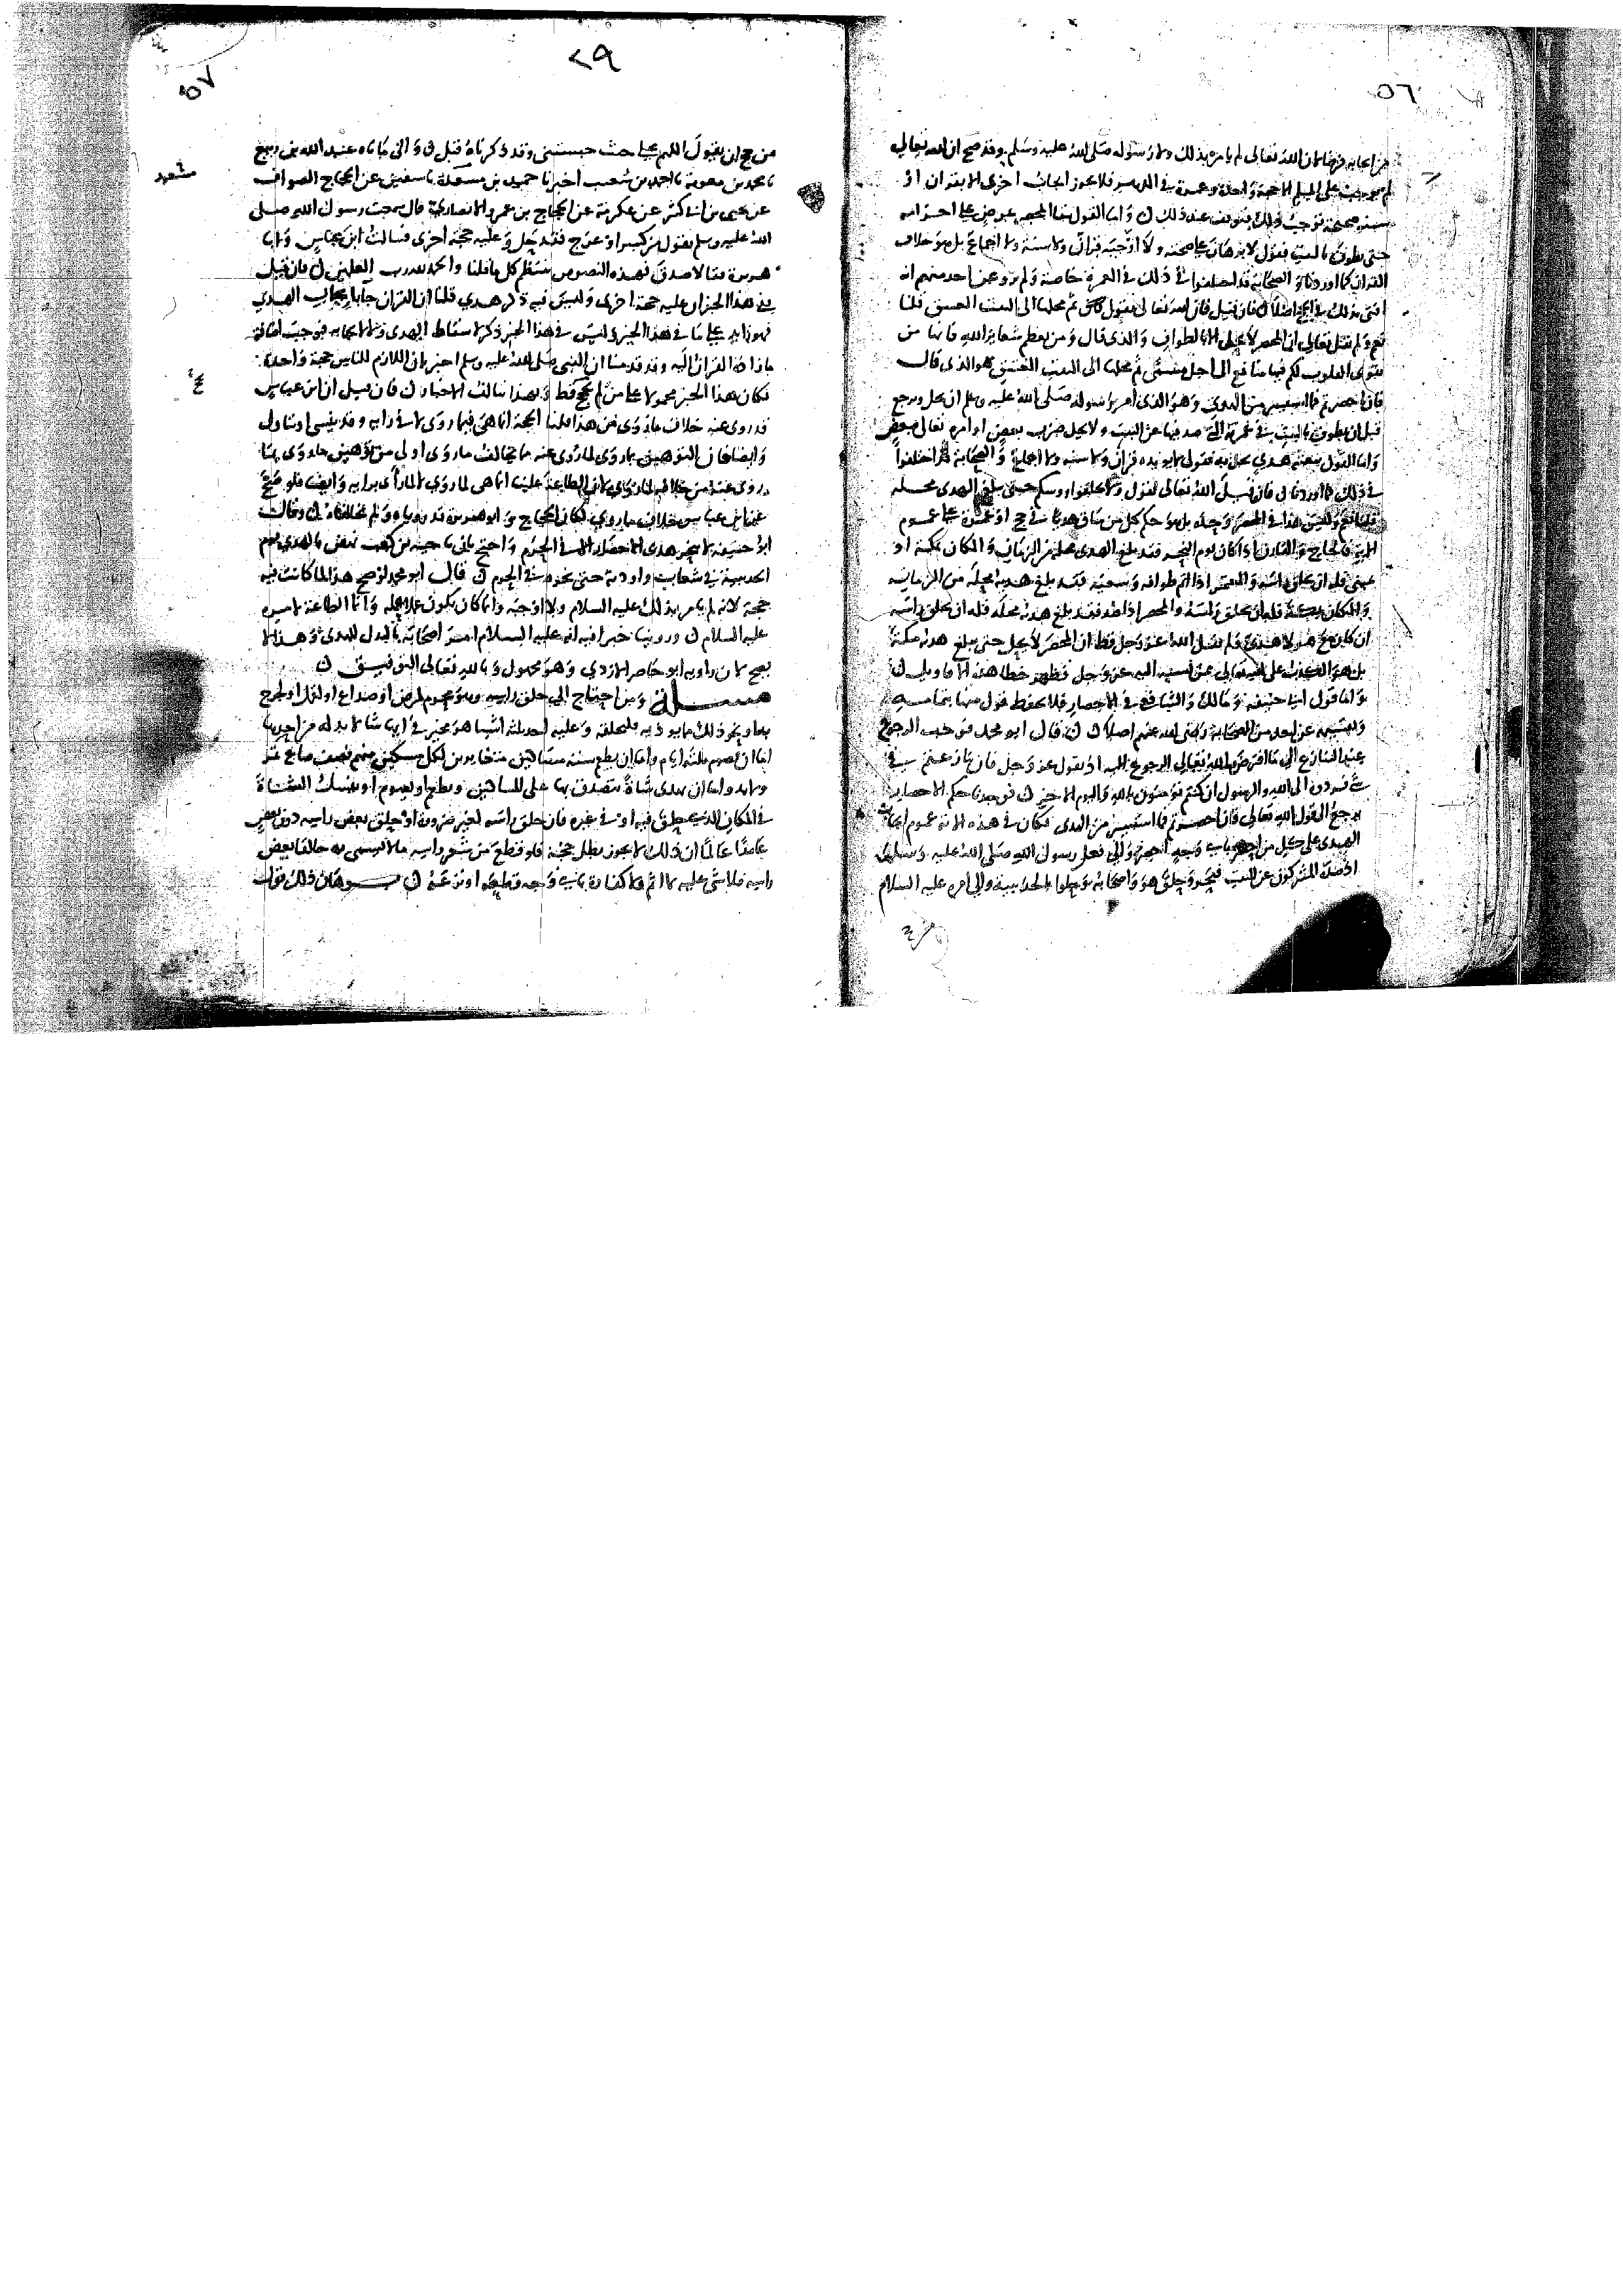 ٥٦
من ايجابه فرضا لان الله تعالى لم يامر بذلك ولا رسوله صلى الله عليه وسلم وقد صح ان الله تعالى
لم يوجب على المسلم الا حجة واحدة وعمرة في الدهر فلا يجوز ايجاب اخرى الا بقران او
سنة صحيحة توجب ذلك فيوقف عند ذلك واما القول ببقاء المحصر بمرض على احرامه
حتى يطوف بالبيت فقول لا برهان على صحته ولا اوجبه قران ولا سنة ولا اجماع بل هو خلاف
القران كما اوردنا والصحابة قد اختلفوا في ذلك في العمرة خاصة ولم يرو عن احد منهم انه
افتى بذلك في الحج اصلا فان قيل فان الله تعالى يقول ثم محلها الى البيت العتيق قلنا
نعم ولم يقل تعالى ان المحصر لا يحل الا بالطواف والذي قال ومن يعظم شعائر الله فانها من
تقوى القلوب لكم فيها منافع الى اجل مسمى ثم محلها الى البيت العتيق هو الذي قال
فان احصرتم فما استيسر من الهدي وهو الذي امر رسوله صلى الله عليه وسلم ان يحل ويرجع
قبل ان يطوف بالبيت في عمرته التي صد فيها عن البيت ولا يحل ضرب بعض اوامره تعالى ببعض
واما القول ببعثه هدي يحل به فقول لا يويده قران ولا سنة ولا اجماع والصحابة قد اختلفوا
في ذلك كما اوردنا فان قيل الله تعالى يقول ولا تحلقوا روسكم حتى يبلغ الهدي محله
قلنا نعم وليس هذا في المحصر وحده بل هو حكم كل من ساق هديا في حج او عمرة على عموم
الاية فالحاج والقارن اذا كان يوم النحر فقد بلغ الهدي محله من الزمان والمكان بمكة او
بمنى فله ان يحلق راسه والمعتمر اذا اتم طوافه وسعيه فقد بلغ هديه محله من الزمان
والمكان بمكة فله ان يحلق راسه والمحصر اذا صد فقد بلغ هديه محله فله ان يحلق راسه
ان كان مع هولاء هدي ولم يقل الله عز وجل قط ان المحصر لا يحل حتى يبلغ هديه مكة
بل هو الكذب على الله تعالى ممن نسبه اليه عز وجل فظهر خطا هذه الاقاويل
واما قول ابي حنيفة ومالك والشافعي في الاحصار فلا يحفظ قول منها بتمامه
وتقسيمه عن احد من الصحابة رضي الله عنهم اصلا قال ابو محمد فوجب الرجوع
عند التنازع الى ما افترض الله تعالى الرجوع اليه اذ يقول عز وجل فان تنازعتم في
شي فردوه الى الله والرسول ان كنتم تومنون بالله واليوم الاخر فوجدنا حكم الاحصار
يرجع الى قول الله تعالى فان احصرتم فما استيسر من الهدي فكان في هذه الاية عموم ايجاب
الهدي على كل من احصر باي وجه احصر والى فعل رسول الله صلى الله عليه وسلم
اذ صده المشركون عن البيت فنحر وحلق هو واصحابه وحلوا بالحديبية والى امره عليه السلام
٢٩
٥٧
من حج ان يقول اللهم محلي حيث حبستني وقد ذكرناه قبل والى ما ناه عبد الله بن ربيع
نا محمد بن معوية نا احمد بن شعيب اخبرنا حميد بن مسعدة نا سفين عن الحجاج الصواف
عن يحيى بن ابي كثير عن عكرمة عن الحجاج بن عمرو الانصاري قال سمعت رسول الله صلى
الله عليه وسلم يقول من كسر او عرج فقد حل وعليه حجة اخرى فسالت ابن عباس وابا
هريرة فقالا صدق فهذه النصوص تنتظم كل ما قلنا والحمد لله رب العلمين فان قيل
في هذا الخبر ان عليه حجة اخرى وليس فيه ذكر هدي قلنا ان القران جا بايجاب الهدي
فهو زائد على ما في هذا الخبر وليس في هذا الخبر ذكر لاسقاط الهدي ولا لايجابه فوجب اضافة
ما زاده القران اليه وقد قدمنا ان النبي صلى الله عليه وسلم اخبر بان اللازم للناس حجة واحدة
فكان هذا الخبر محمولا على من لم يحج قط وبهذا تتالف الاخبار فان قيل ان ابن عباس
قد روي عنه خلاف ما روى من هذا قلنا الحجة انما هي فيما روى لا في رايه وقد ينسى او يتاول
وايضا فان التوهين بما روى لما روي عنه مما يخالف ما روى اولى من توهين ما روى بما
روي عنه من خلافه لما روى لان الطاعة علينا انما هي لما روى لا لما راى برايه وايضا فلو صح
عن ابن عباس خلاف ما روى لكان الحجاج وابو هريرة قد روياه ولم يخالفاه وقالت
ابو حنيفة لا ينحر هدي الاحصار الا في الحرم واحتج بان ناجية بن كعب نهض بالهدي يوم
الحديبية في شعاب واودية حتى نحره في الحرم قال ابو محمد لو صح هذا لما كانت فيه
حجة لانه لم يامر بذلك عليه السلام ولا اوجبه وانما كان يكون عملا عمله وانما الطاعة لامره
عليه السلام وروينا خبرا فيه انه عليه السلام امر اصحابه بالبدل للهدي وهذا لا
يصح لان راويه ابو حاضر الازدي وهو مجهول وبالله تعالى التوفيق
مسلة ومن احتاج الى حلق راسه وهو محرم لمرض او صداع او لقمل او لجرح
به او نحو ذلك مما يوذيه فليحلقه وعليه احد ثلثة اشيا هو مخير في ايها شا لا بد له من احدها
اما ان يصوم ثلثة ايام واما ان يطعم ستة مساكين متغايرين لكل مسكين منهم نصف صاع تمر
ولا بد واما ان يهدي شاة يتصدق بها على المساكين ويطعم او يصوم او ينسك الشاة
في المكان الذي حلق فيه او في غيره فان حلق راسه لغير ضرورة او حلق بعض راسه دون بعض
عامدا عالما ان ذلك لا يجوز بطل حجه فلو قطع من شعر راسه ما لا يسمى به حالقا بعض
راسه فلا شي عليه لا اثم ولا كفارة باي وجه قطعه او نزعه برهان ذلك قول